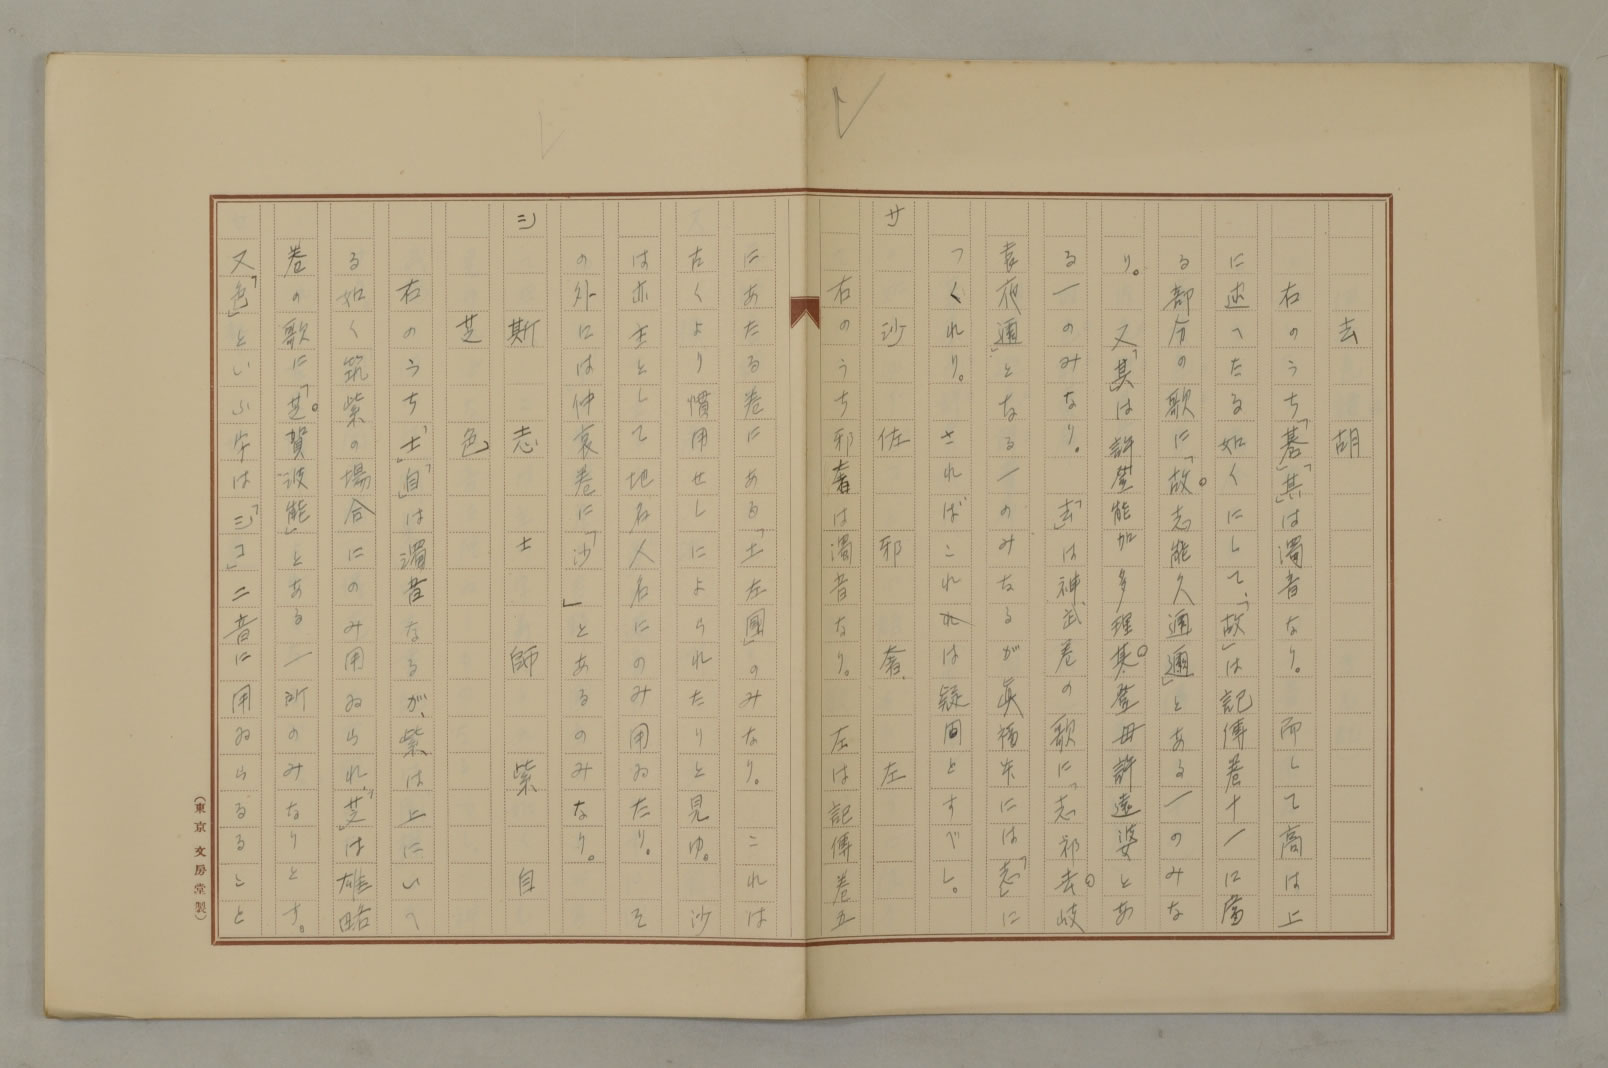 去　胡
右のうち「碁」「其」は濁音なり。　而して高は上
に述へたる如くにして、「故」は記傳卷十一に當
る部分の歌に「故志能久邇邇」とある一のみな
り。　又「其」は許登能加多理其登母許遠婆とあ
る一のみなり。　「去」は神武卷の歌に「志祁去岐
袁夜邇」となる一のみなるが眞福本には「志」に
つくれり。　さればこれは疑問とすべし。
サ　沙　佐　邪　奢　左
右のうち邪奢は濁音なり。　左は記傳卷五
にあたる卷にある「土左國」のみなり。　これは
なくより慣用せしによられたりと見ゆ。　沙
は亦主として地名人名にのみ用ゐたり。　そ
の外には仲哀卷に「沙」とあるのみなり。
シ　斯　志　士　師　紫　自
芝　色
右のうち「士」「自」は濁音なるが、紫は上にいへ
る如く筑紫の場合にのみ用ゐられ、「芝」は雄略
卷の歌に「芝賀波能」とある一所のみなりとす。
又「色」といふ字は「シ」「コ」二音に用ゐらるること
（東京文房堂製）